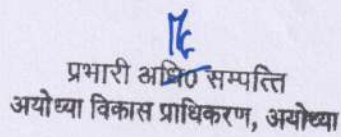 प्रभारी अधि० सम्पत्ति
अयोध्या विकास प्राधिकरण, अयोध्या